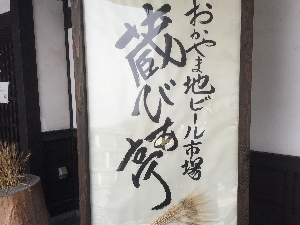 おかやま地ビール市場
蔵びあ亭